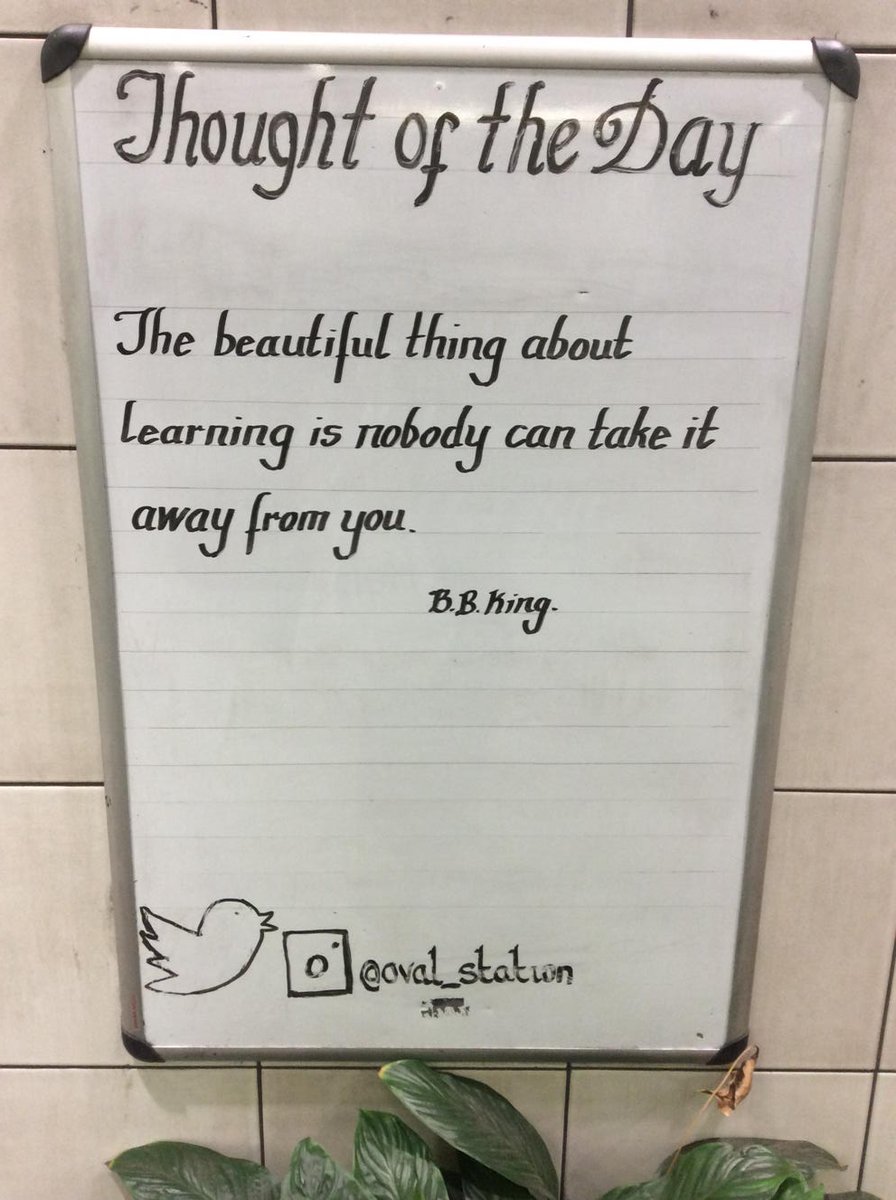 Thought of the Day
The beautiful thing about
learning is nobody can take it
away from you.
B.B. King.
@oval_station